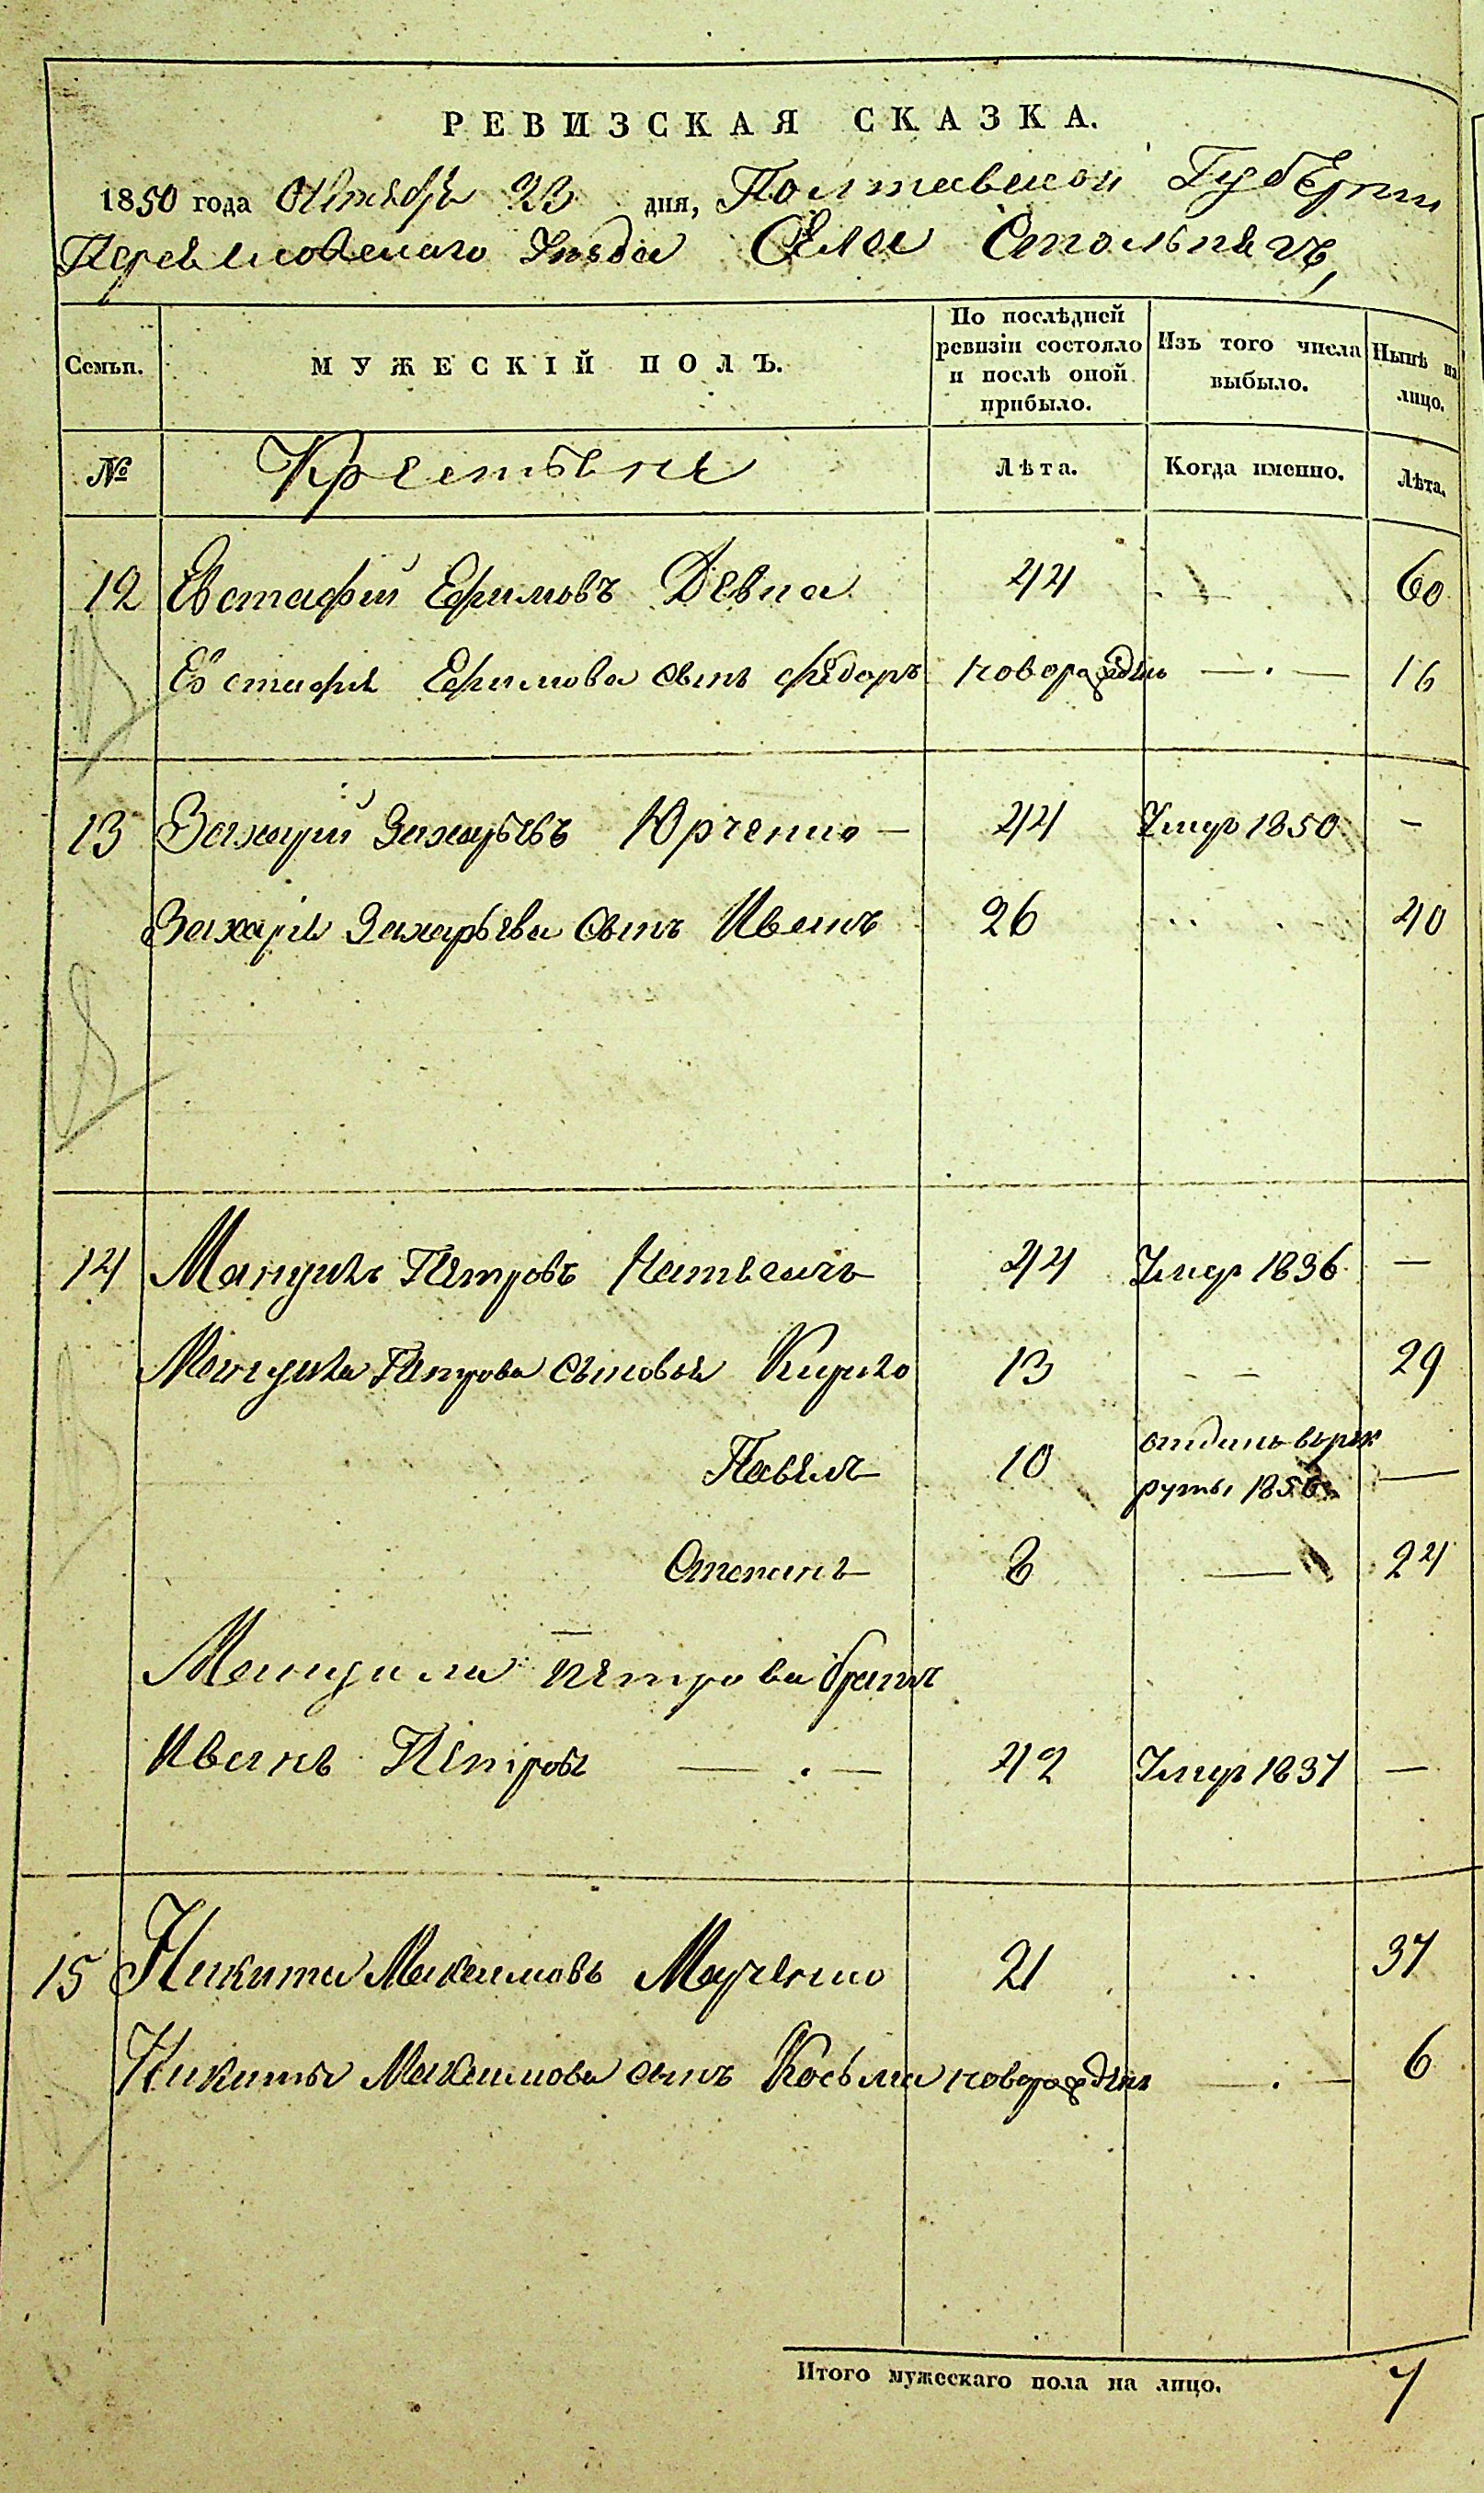 РЕВИЗСКАЯ СКАЗКА.
1850 года Октября 23 дня, Полтавской Губерніи
Переяславскаго Уѣзда Села Столпяг,
Семьи.
МУЖЕСКІЙ ПОЛЪ.
По послѣдней ревизіи состояло и послѣ оной прибыло.
Изъ того числа выбыло.
Нынѣ на лицо.
№ Крестьяне Лѣта. Когда именно. Лѣта.
12 Евстафий Ефимовъ Девпа 44 60
Евстафия Ефимова сынъ Федоръ новорожден — . — 16
13 Захарий Захарьевъ Юрченко — 44 Умер 1850 —
Захария Захарьева сынъ Иванъ 26 40
14 Мануилъ Петровъ 44 Умер 1836 —
Мануила Петрова сыновья Кирило 13 — — 29
Павелъ 10 отданъ в рек
руты 185 —
Степанъ 8 — 24
Мануила Петрова братъ
Иванъ Петровъ — . — 42 Умер 1837 —
15 Никита Максимовъ Марченко 21 37
Никиты Максимова сынъ Косьма новорожден — . — 6
Итого мужескаго пола на лицо. 7